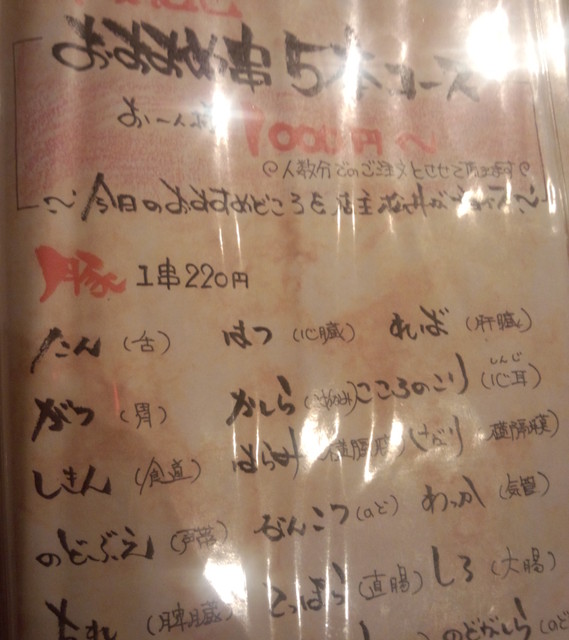 おすすめ串 5本コース
お一人
人数分でのご注文とさせて頂きます
〜今日のおすすめどころを店主
豚 1串220円
たん (舌) はつ (心臓) れば (肝臓)
がつ (胃) かしら (こめかみ) こころのこり (心耳) しんじ
しきん (食道) はらみ (横隔膜) さがり (横隔膜)
のどぶえ (声帯) なんこつ (のど) わっか (気管)
ちれ (脾臓) てっぽう (直腸) しろ (大腸)
のどがしら (のど